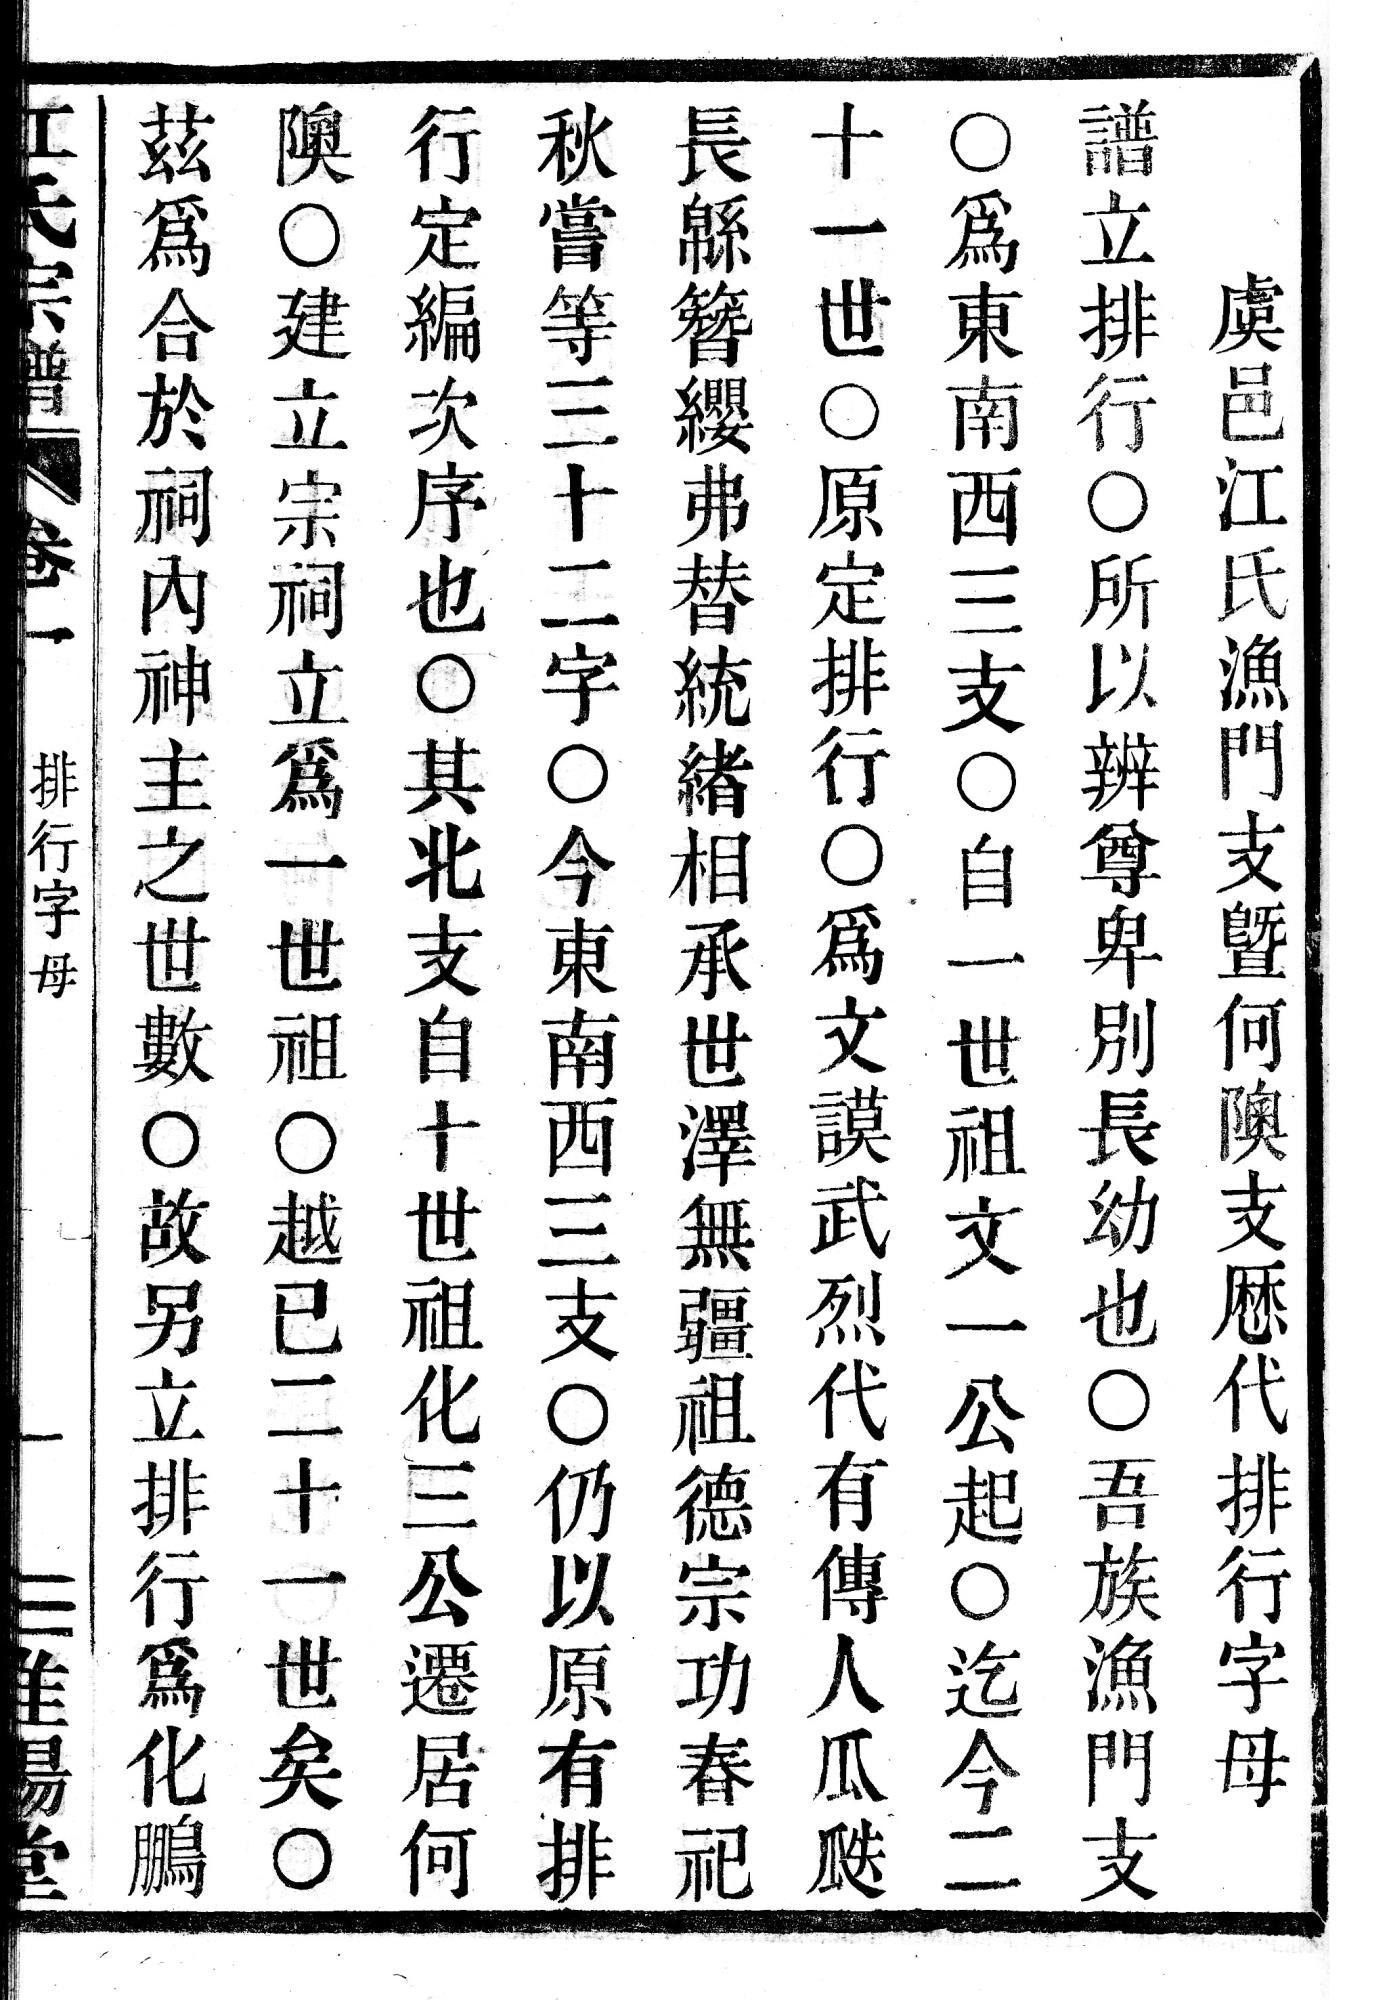 虞邑江氏漁門支曁何隩支厯代排行字母
譜立排行○所以辨尊卑別長幼也○吾族漁門支
○爲東南西三支○自一世祖文一公起○迄今二
十一世○原定排行○爲文謨武烈代有傳人瓜瓞
長緜簪纓弗替統緒相承世澤無疆祖德宗功春祀
秋嘗等三十二字○今東南西三支○仍以原有排
行定編次序也○其北支自十世祖化三公遷居何
隩○建立宗祠立爲一世祖○越已二十一世矣○
茲爲合於祠內神主之世數○故另立排行爲化鵬
江氏宗譜 卷一 排行字母 一 三 惟暘堂